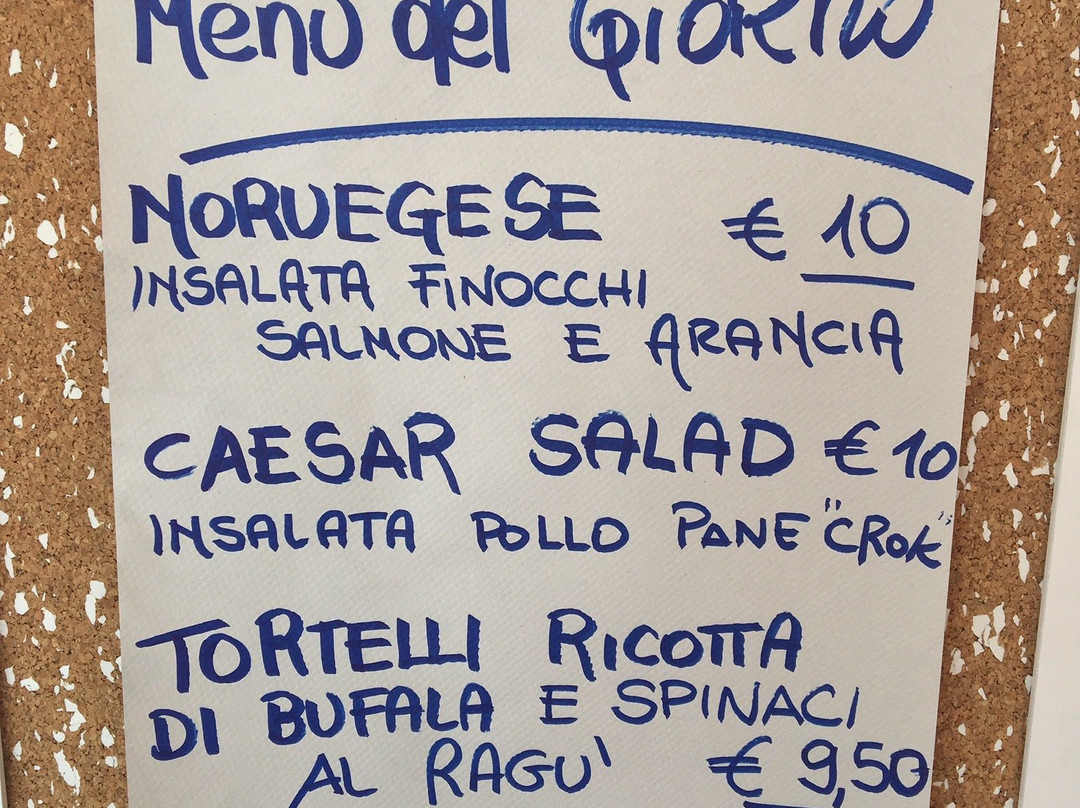 Menù del Giorno
NORVEGESE € 10
INSALATA FINOCCHI
SALMONE E ARANCIA
CAESAR SALAD € 10
INSALATA POLLO PANE "CROK"
TORTELLI RICOTTA
DI BUFALA E SPINACI
AL RAGU' € 9,50